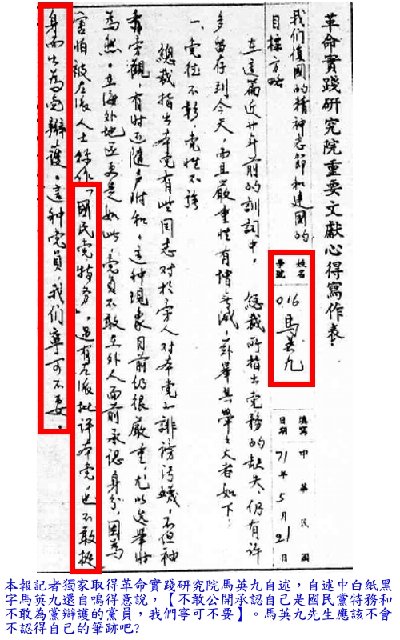 革命實踐研究院重要文獻心得寫作表
我們復國的精神志節和建國的
目標方略
姓名
學號
016 馬英九
填寫日期
中華民國
71年5月21日
在這篇近廿年前的訓詞中，總裁所指出党務的缺失，仍有許
多留存到今天，而且嚴重性有增無減，茲舉其犖犖大者如下：
一、党德不彰 党性不強
總裁指出本党有些同志對於旁人對本党之誹謗污衊，不但袖
手旁觀，有時還隨声附和，這种現象目前仍很嚴重，尤以選舉時
為然。在海外地區也是如此，党員不敢在外人面前承認身分，因為
害怕被左派人士稱作「國民党特務」，遇有左派批評本党，也不敢挺
身而出為党辯護。這种党員，我們寧可不要。
本報記者獨家取得革命實踐研究院馬英九自述，自述中白紙黑
字馬英九還自鳴得意說，【不敢公開承認自己是國民黨特務和
不敢為黨辯護的黨員，我們寧可不要】。馬英九先生應該不會
不認得自己的筆跡吧？